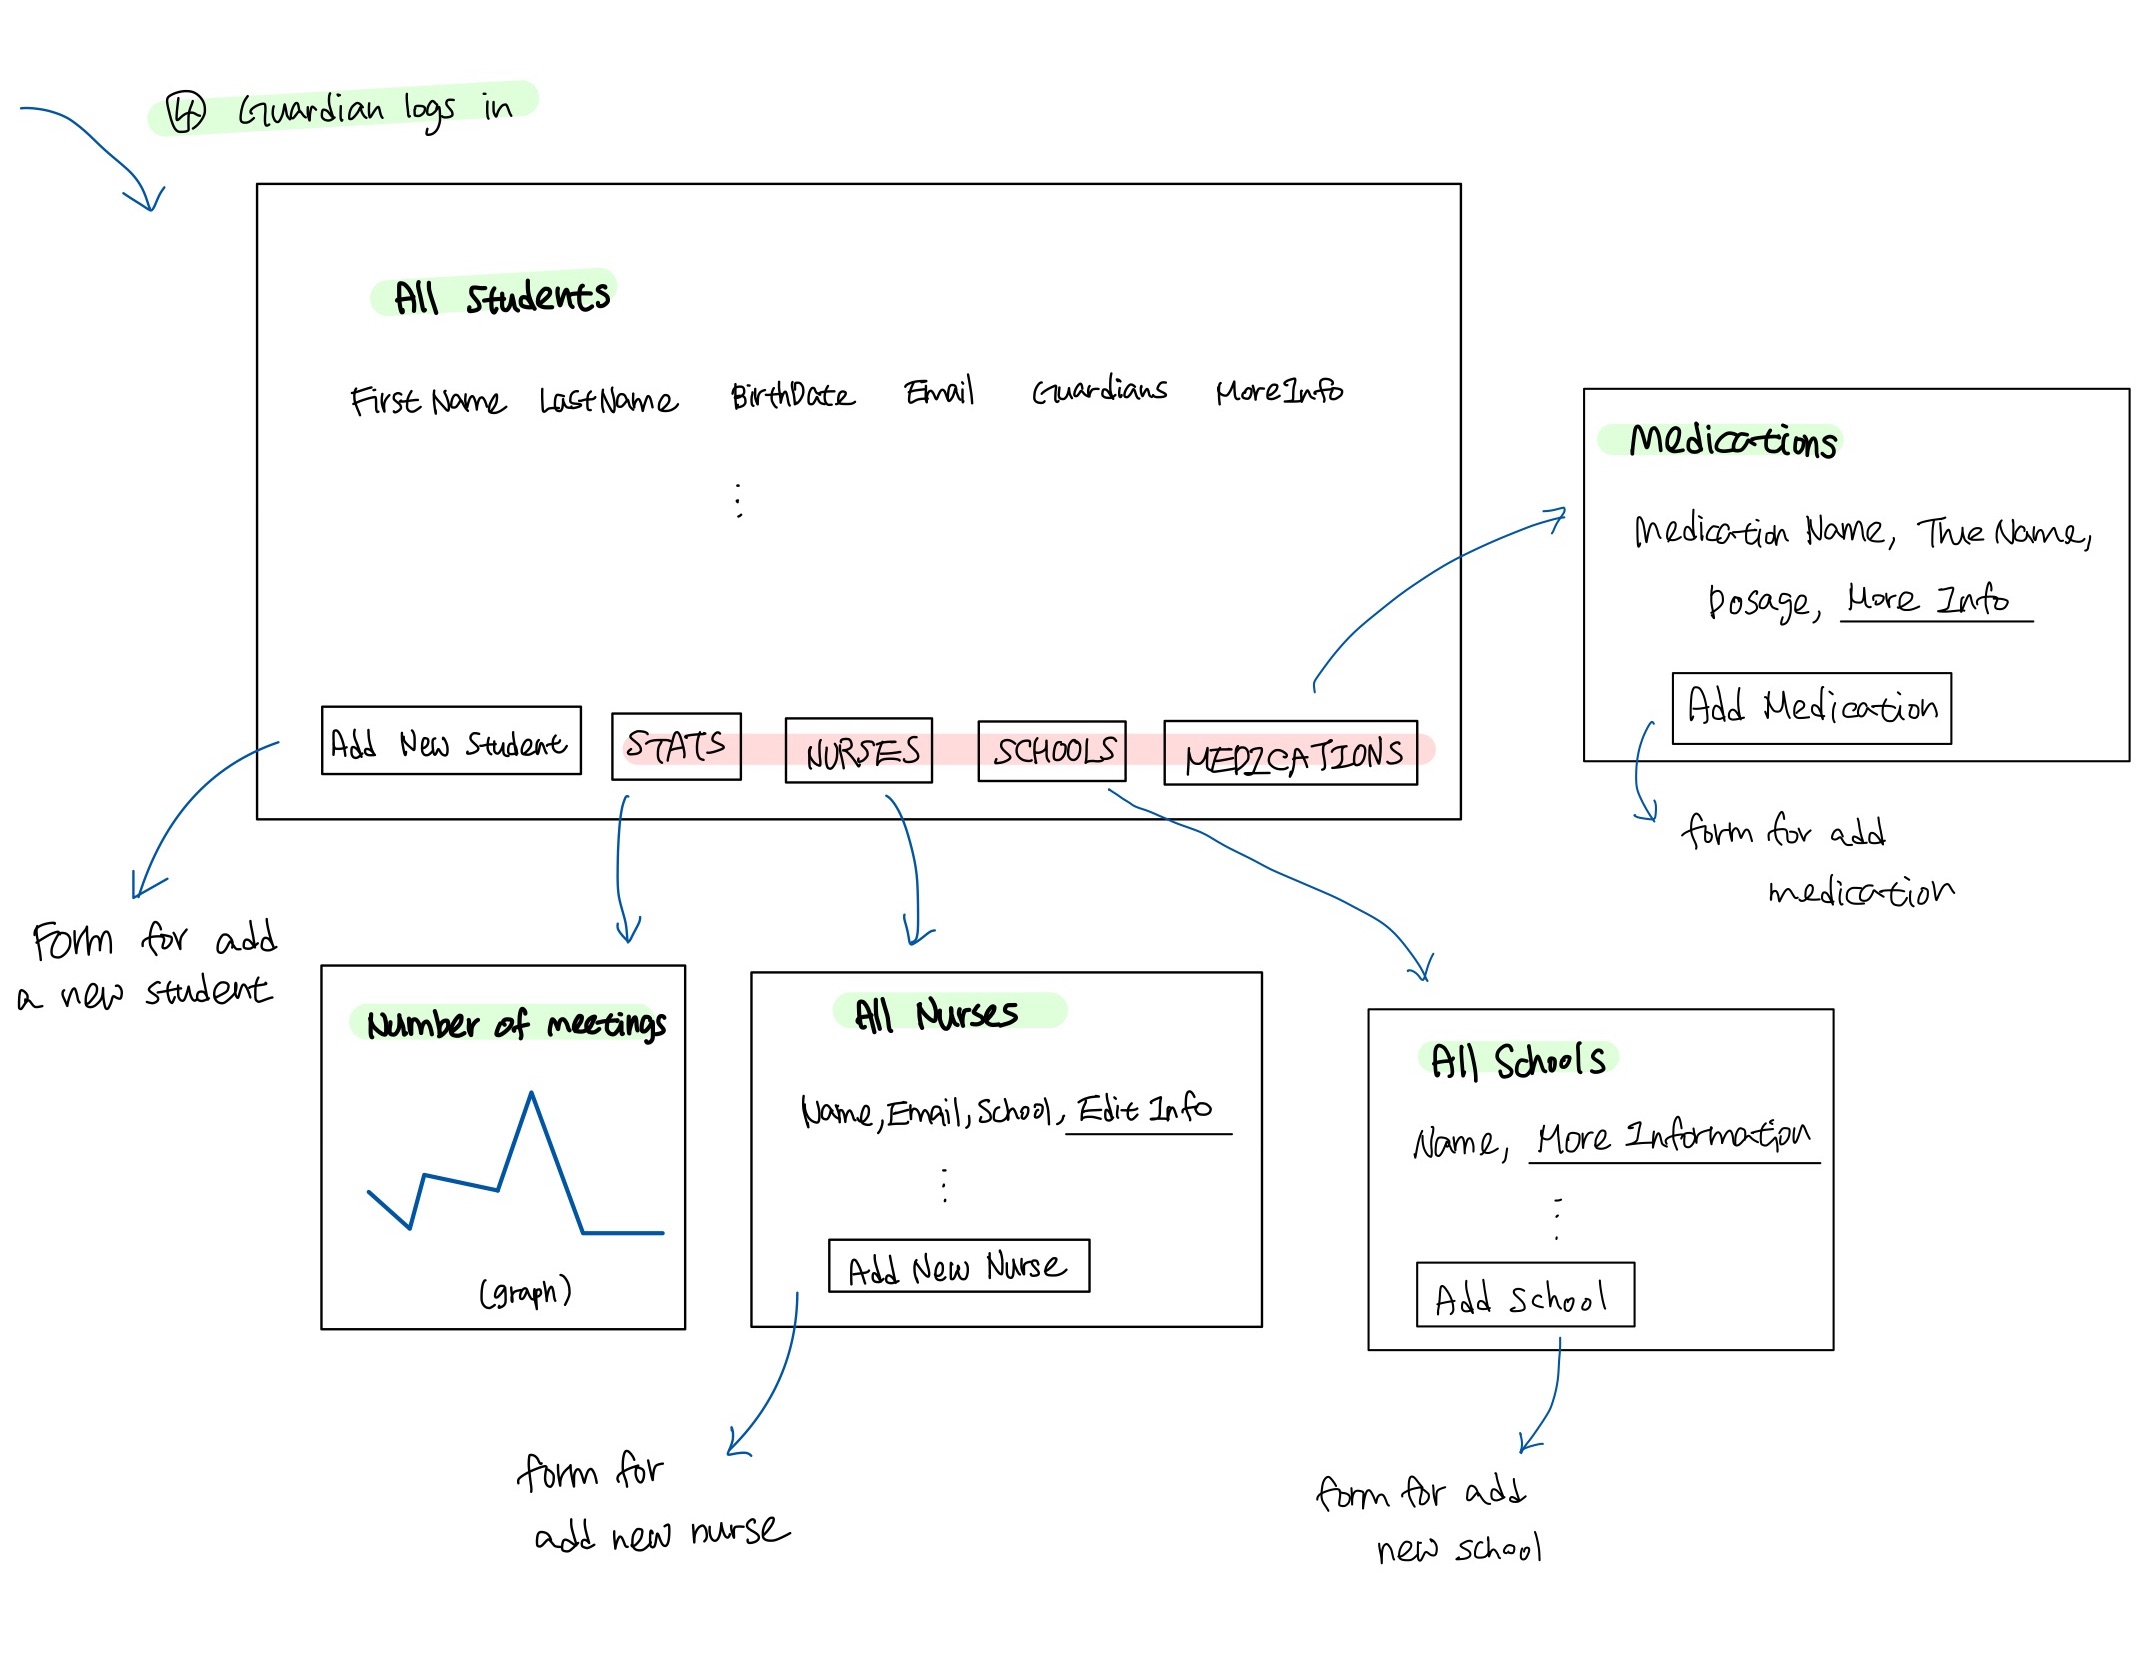 4 Guardian logs in
All Students
First Name Last Name BirthDate Email Guardians More Info
Add New Student STATS NURSES SCHOOLS MEDICATIONS
Medications
Medication Name, True Name,
Dosage, More Info
Add Medication
form for add
medication
Form for add
a new student
Number of meetings
(graph)
All Nurses
Name, Email, School, Edit Info
Add New Nurse
form for
add new nurse
All Schools
Name, More Information
Add School
form for add
new school